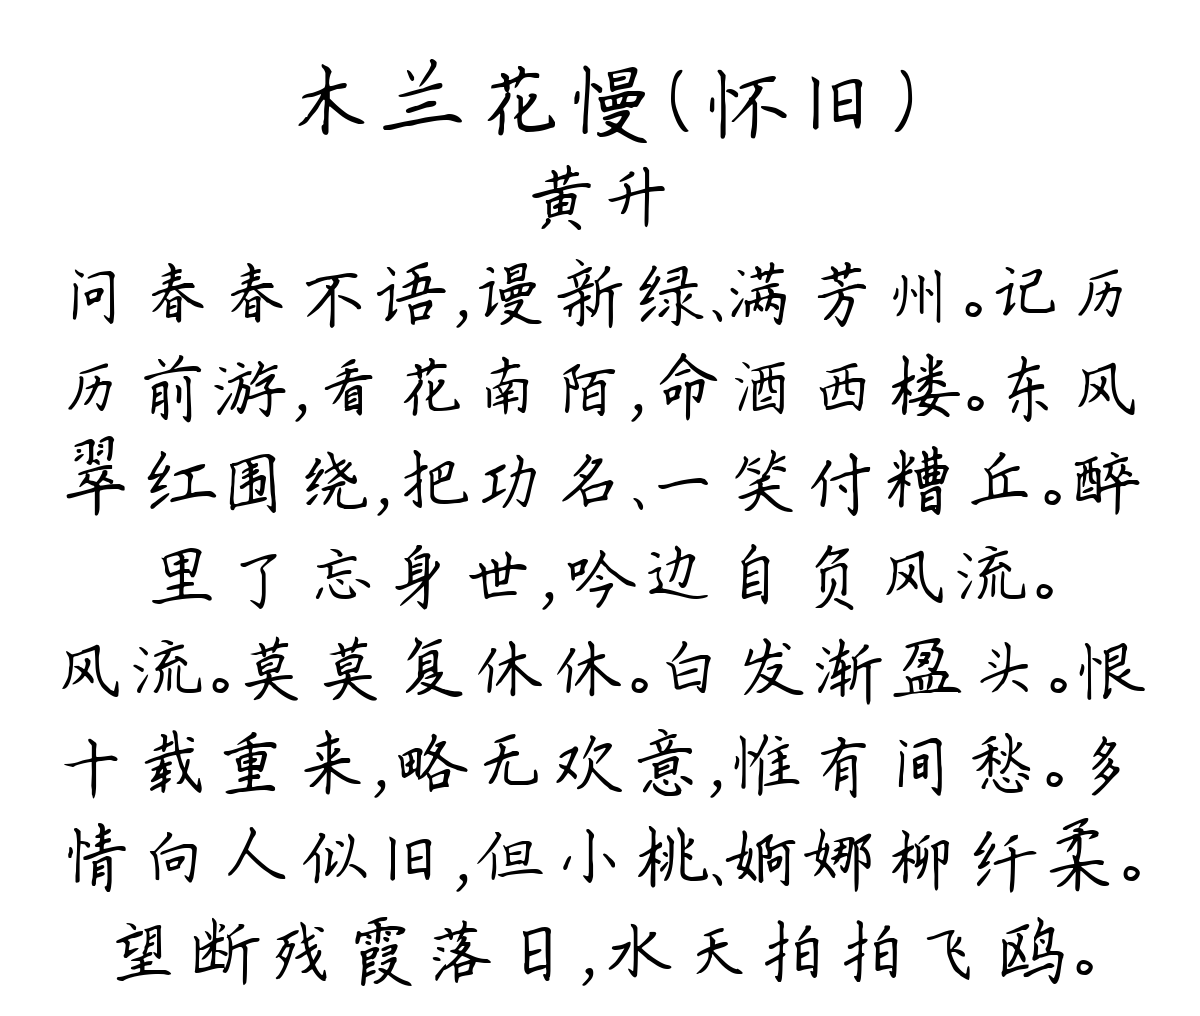 木兰花慢(怀旧)
黄升
问春春不语,谩新绿、满芳州。记历
历前游,看花南陌,命酒西楼。东风
翠红围绕,把功名、一笑付糟丘。醉
里了忘身世,吟边自负风流。
风流。莫莫复休休。白发渐盈头。恨
十载重来,略无欢意,惟有间愁。多
情向人似旧,但小桃、婀娜柳纤柔。
望断残霞落日,水天拍拍飞鸥。